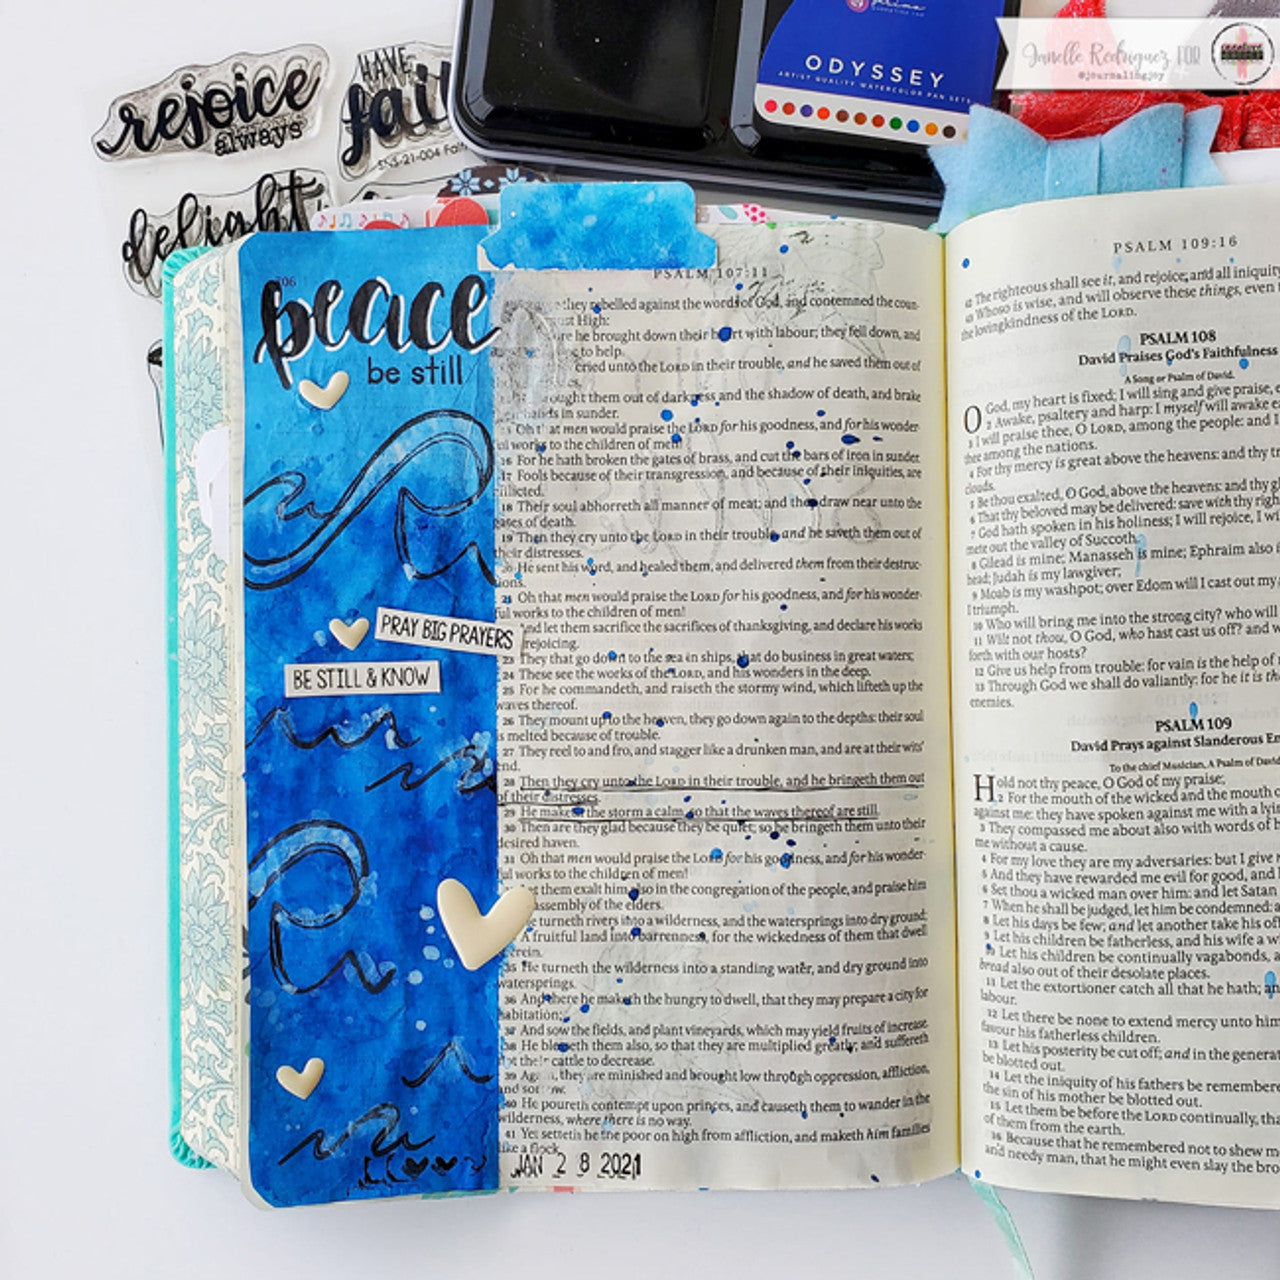 Janelle Rodriguez FOR
@journalingjoy
rejoice
always
HAVE
delight
ODYSSEY
ARTIST QUALITY WATERCOLOR PAN SETS
706
peace
be still
PRAY BIG PRAYERS
BE STILL & KNOW
PSALM 107:11
they rebelled against the words of God, and contemned the coun-
High:
he brought down their heart with labour; they fell down, and
to help.
cried unto the LORD in their trouble, and he saved them out of
them out of darkness and the shadow of death, and brake
in sunder.
that men would praise the LORD for his goodness, and for his wonder-
works to the children of men!
16 For he hath broken the gates of brass, and cut the bars of iron in sunder.
17 Fools because of their transgression, and because of their iniquities, are
18 Their soul abhorreth all manner of meat; and they draw near unto the
gates of death.
19 Then they cry unto the LORD in their trouble, and he saveth them out of
their distresses.
20 He sent his word, and healed them, and delivered them from their destruc-
tions.
21 Oh that men would praise the LORD for his goodness, and for his wonder-
ful works to the children of men!
And let them sacrifice the sacrifices of thanksgiving, and declare his works
rejoicing.
23 They that go down to the sea in ships, that do business in great waters;
24 These see the works of the LORD, and his wonders in the deep.
25 For he commandeth, and raiseth the stormy wind, which lifteth up the
waves thereof.
26 They mount up to the heaven, they go down again to the depths: their soul
is melted because of trouble.
27 They reel to and fro, and stagger like a drunken man, and are at their wits'
end.
28 Then they cry unto the LORD in their trouble, and he bringeth them out
of their distresses.
29 He maketh the storm a calm, so that the waves thereof are still.
30 Then are they glad because they be quiet; so he bringeth them unto their
desired haven.
31 Oh that men would praise the LORD for his goodness, and for his wonder-
ful works to the children of men!
them exalt him also in the congregation of the people, and praise him
assembly of the elders.
turneth rivers into a wilderness, and the watersprings into dry ground;
A fruitful land into barrenness, for the wickedness of them that dwell
35 He turneth the wilderness into a standing water, and dry ground into
watersprings.
36 And there he maketh the hungry to dwell, that they may prepare a city for
habitation;
37 And sow the fields, and plant vineyards, which may yield fruits of increase.
38 He blesseth them also, so that they are multiplied greatly; and suffereth
not their cattle to decrease.
39 Again, they are minished and brought low through oppression, affliction,
and sorrow.
40 He poureth contempt upon princes, and causeth them to wander in the
wilderness, where there is no way.
41 Yet setteth he the poor on high from affliction, and maketh him families
like a flock.
JAN 28 2021
PSALM 109:16
42 The righteous shall see it, and rejoice: and all iniquity
43 Whoso is wise, and will observe these things, even
the lovingkindness of the LORD.
PSALM 108
David Praises God's Faithfulness
A Song or Psalm of David.
O God, my heart is fixed; I will sing and give praise,
2 Awake, psaltery and harp: I myself will awake
3 I will praise thee, O LORD, among the people: and I
thee among the nations.
4 For thy mercy is great above the heavens: and thy
clouds.
5 Be thou exalted, O God, above the heavens: and thy
6 That thy beloved may be delivered: save with thy right
7 God hath spoken in his holiness; I will rejoice, I
mete out the valley of Succoth.
8 Gilead is mine; Manasseh is mine; Ephraim also
head; Judah is my lawgiver;
9 Moab is my washpot; over Edom will I cast out my
I triumph.
10 Who will bring me into the strong city? who will
11 Wilt not thou, O God, who hast cast us off? and
forth with our hosts?
12 Give us help from trouble: for vain is the help of
13 Through God we shall do valiantly: for he it is
enemies.
PSALM 109
David Prays against Slanderous
To the chief Musician, A Psalm of David
Hold not thy peace, O God of my praise;
2 For the mouth of the wicked and the mouth
against me: they have spoken against me with a lying
3 They compassed me about also with words of
me without a cause.
4 For my love they are my adversaries: but I give
5 And they have rewarded me evil for good, and
6 Set thou a wicked man over him: and let Satan
7 When he shall be judged, let him be condemned:
8 Let his days be few; and let another take his
9 Let his children be fatherless, and his wife a
10 Let his children be continually vagabonds,
bread also out of their desolate places.
11 Let the extortioner catch all that he hath;
labour.
12 Let there be none to extend mercy unto him:
favour his fatherless children.
13 Let his posterity be cut off; and in the
be blotted out.
14 Let the iniquity of his fathers be remembered
the sin of his mother be blotted out.
15 Let them be before the LORD continually,
of them from the earth.
16 Because that he remembered not to shew
and needy man, that he might even slay the